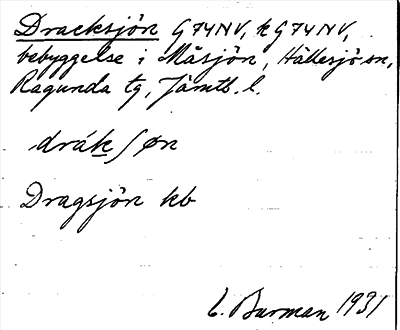 Dracksjön G74NV, k G74NV,
bebyggelse i Måsjön, Hällesjö sn,
Ragunda tg, Jämtl. l.
drákʃøn
Dragsjön kb
C. Burman 1931